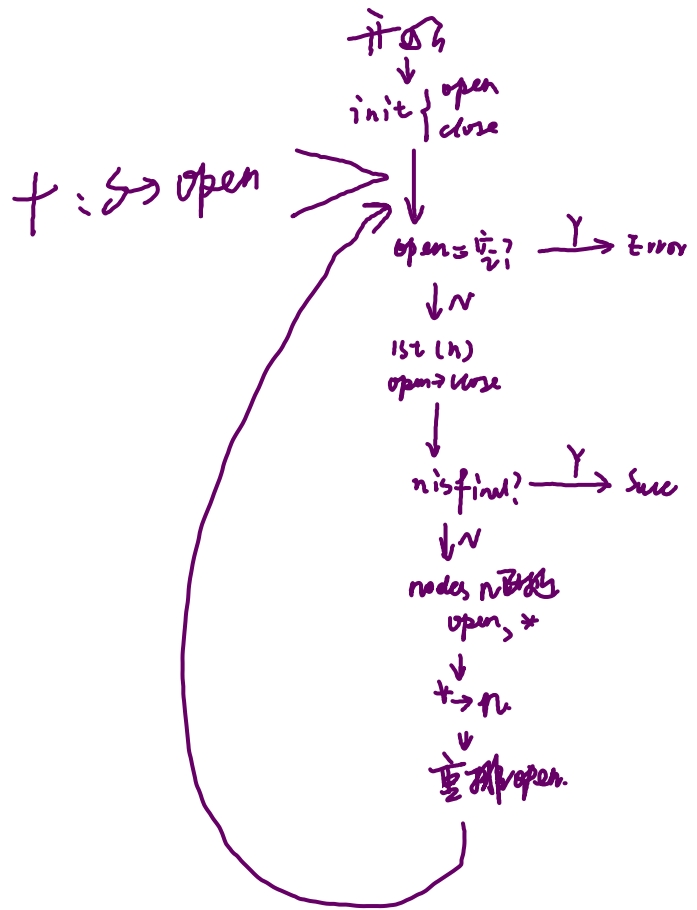 开始
init { open
close
+ : S → open
open = 空? Y → Error
N
1st (n)
open→close
n is final? Y → Succ
N
nodes n可到
open, *
* → n.
重排open.